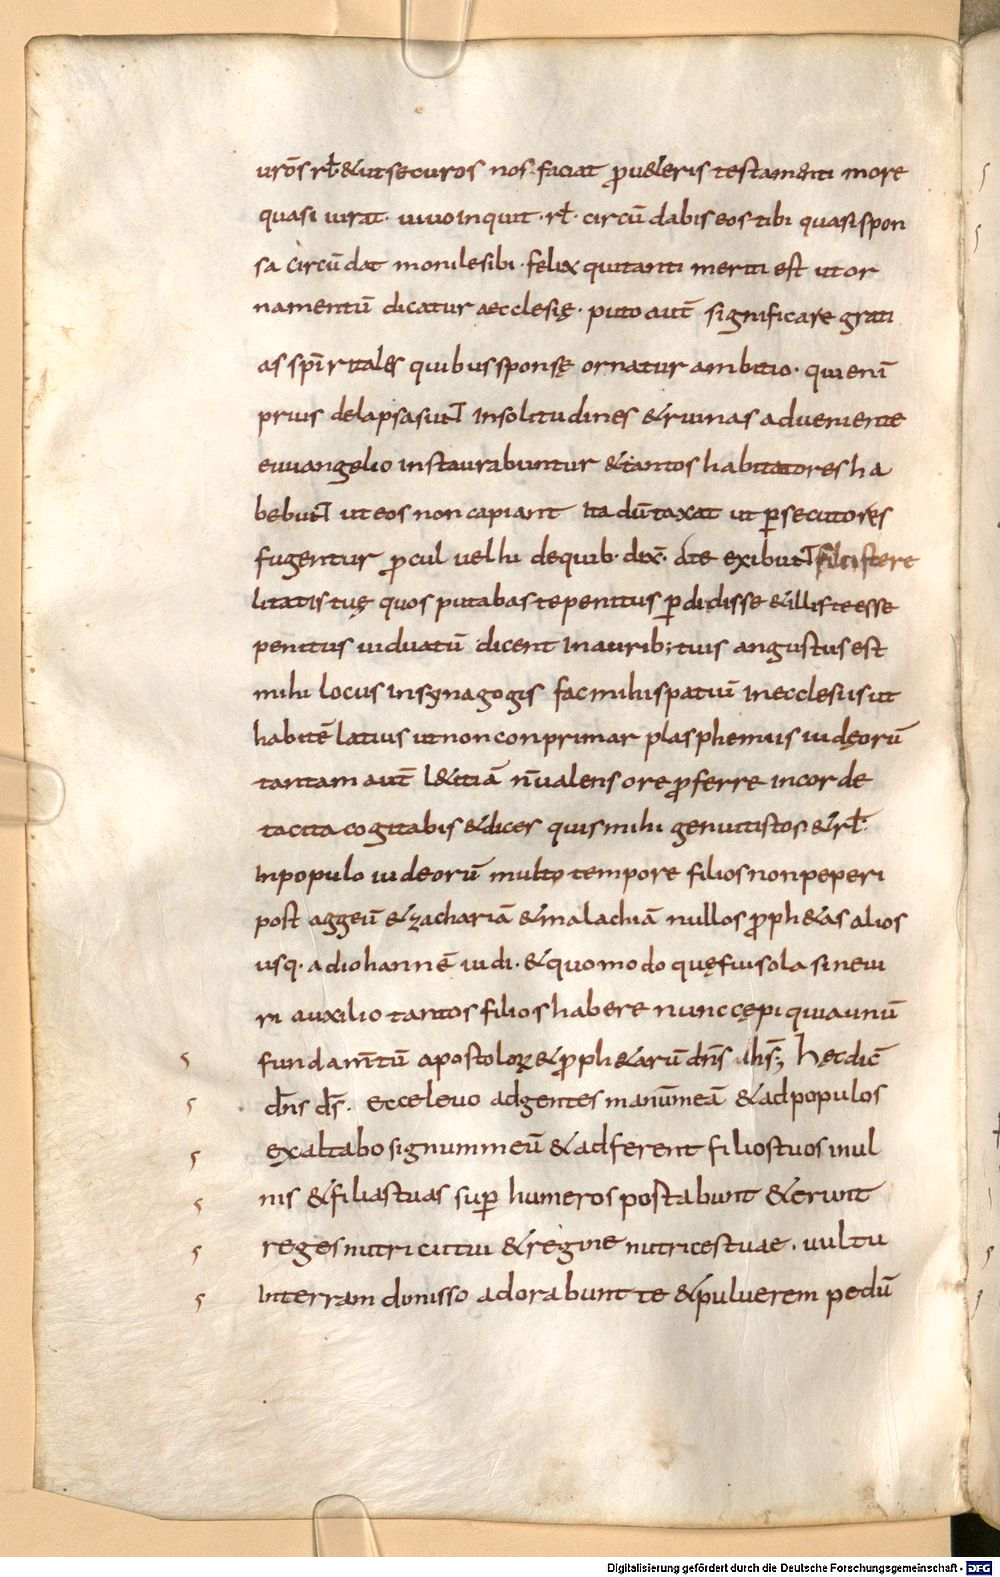 urōs rł· & ut securos nos· faciat p̄ u&eris testam̄ti more
quasi iurat· uiuo inquit· rł· circū dabis eos tibi quasi spon
sa circūdat monile sibi· felix qui tanti meriti est ut or
namentū dicatur aecclesię· puto aut̄ significare grati
as sp̄iritales quibus sponsę ornatur ambitio· qui enī
prius delapsa sunt in solitudines & ruinas adueniente
euuangelio instaurabuntur & tantos habitatores ha
bebunt ut eos non capiant ita dūtaxat ut ꝑsecutores
fugentur p̄cul uel hi de quib· dix̄· a te exibunt filii stere
litatis tuę quos putabas te penitus ꝑdidisse & illis te esse
penitus uiduatū dicent in aurib; tuis angustus est
mihi locus in synagogis fac mihi spatiū in ecclesiis ut
habitē latius ut non conprimar plasphemiis iudęorū
tantam aut̄ l&itiā n̄ ualens ore p̄ferre in corde
tacita cogitabis & dices quis mihi genuit istos & rł·
In populo iudeorū multo tempore filios non peperi
post aggeū & zachariā & malachiā nullos p̄ph&as alios
usq· ad iohannē uidi· & quomodo quę fui sola sine ui
ri auxilio tantos filios habere nunc cępi quia unū
fundam̄tū apostoloꝝ & p̄ph&arū dn̄s ihs̄; hęc dic̄
dn̄s ds̄· ecce leuo ad gentes manū meā & ad populos
exaltabo signum meū & adferent filios tuos in ul
nis & filias tuas suꝑ humeros postabunt & erunt
reges nutricii tui & regine nutrices tuae· uultu
in terram dimisso adorabunt te & puluerem pedū
Digitalisierung gefördert durch die Deutsche Forschungsgemeinschaft - DFG